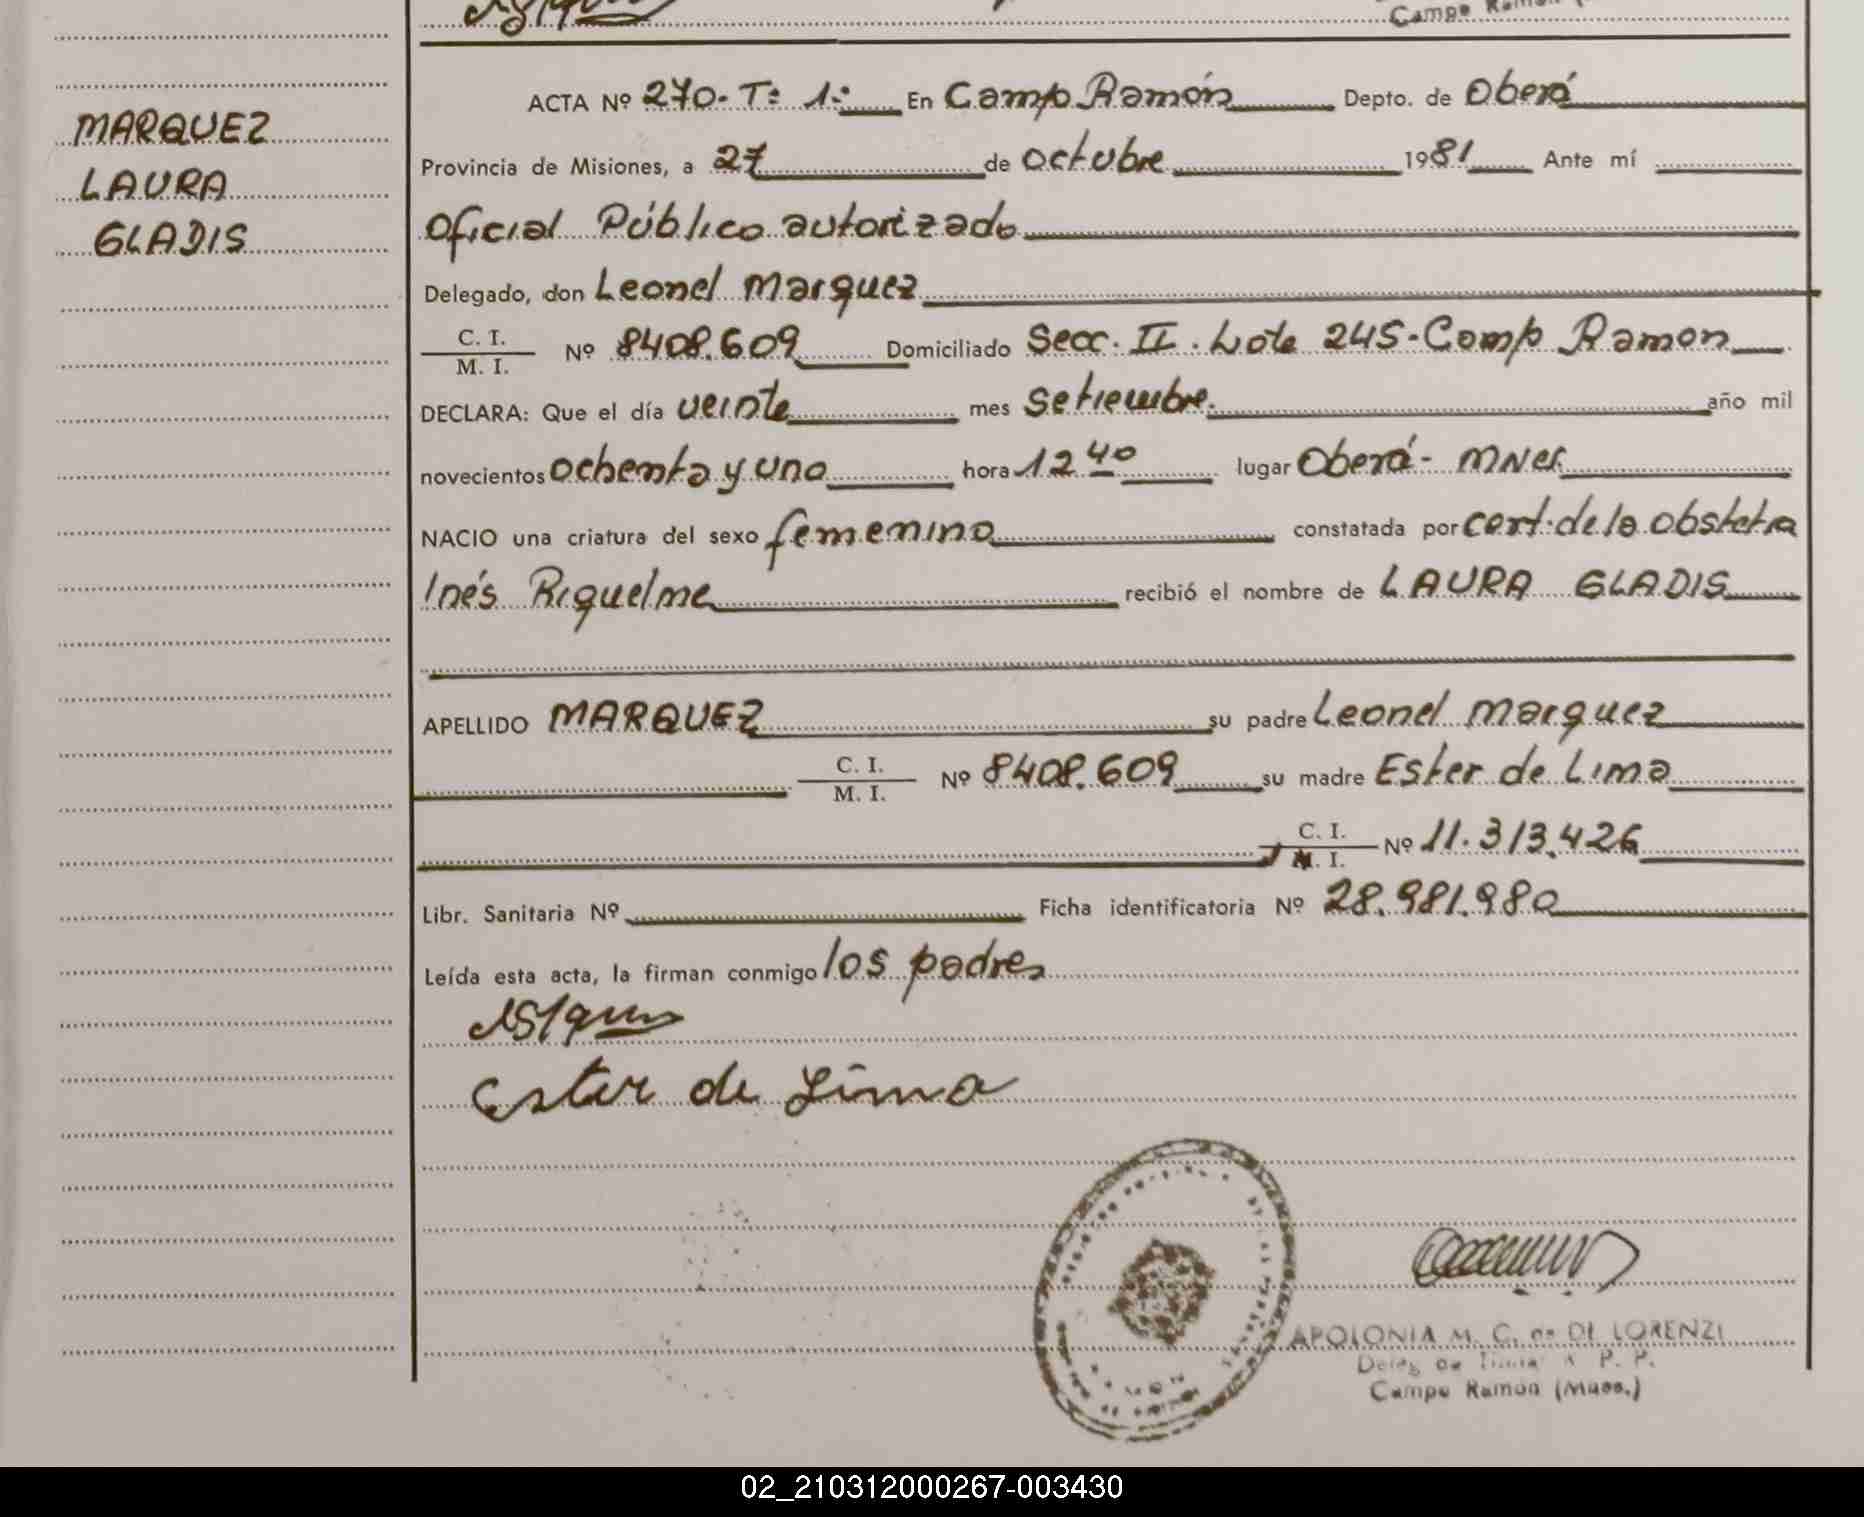 Campo Ramón (
MARQUEZ
LAURA
GLADIS
ACTA Nº 270. Tº 1º En Campo Ramón Depto. de Oberá
Provincia de Misiones, a 27 de octubre 1981 Ante mí
Oficial Público autorizado
Delegado, don Leonel Marquez
C. I. / M. I. Nº 8408.609 Domiciliado Secc. II. Lote 245-Campo Ramon
DECLARA: Que el día veinte mes setiembre. año mil
novecientos ochenta y uno hora 12 40 lugar Oberá - Mnes.
NACIO una criatura del sexo femenino constatada por cert. de la obstetra
Inés Riquelme recibió el nombre de LAURA GLADIS
APELLIDO MARQUEZ su padre Leonel Marquez
C. I. / M. I. Nº 8408.609 su madre Ester de Lima
C. I. / M. I. Nº 11.313.426
Libr. Sanitaria Nº Ficha identificatoria Nº 28.981.980
Leída esta acta, la firman conmigo los padres
Ester de Lima
APOLONIA M. C. de DI LORENZI
Deleg. de P. P.
Campo Ramón (Mnes.)
02_210312000267-003430